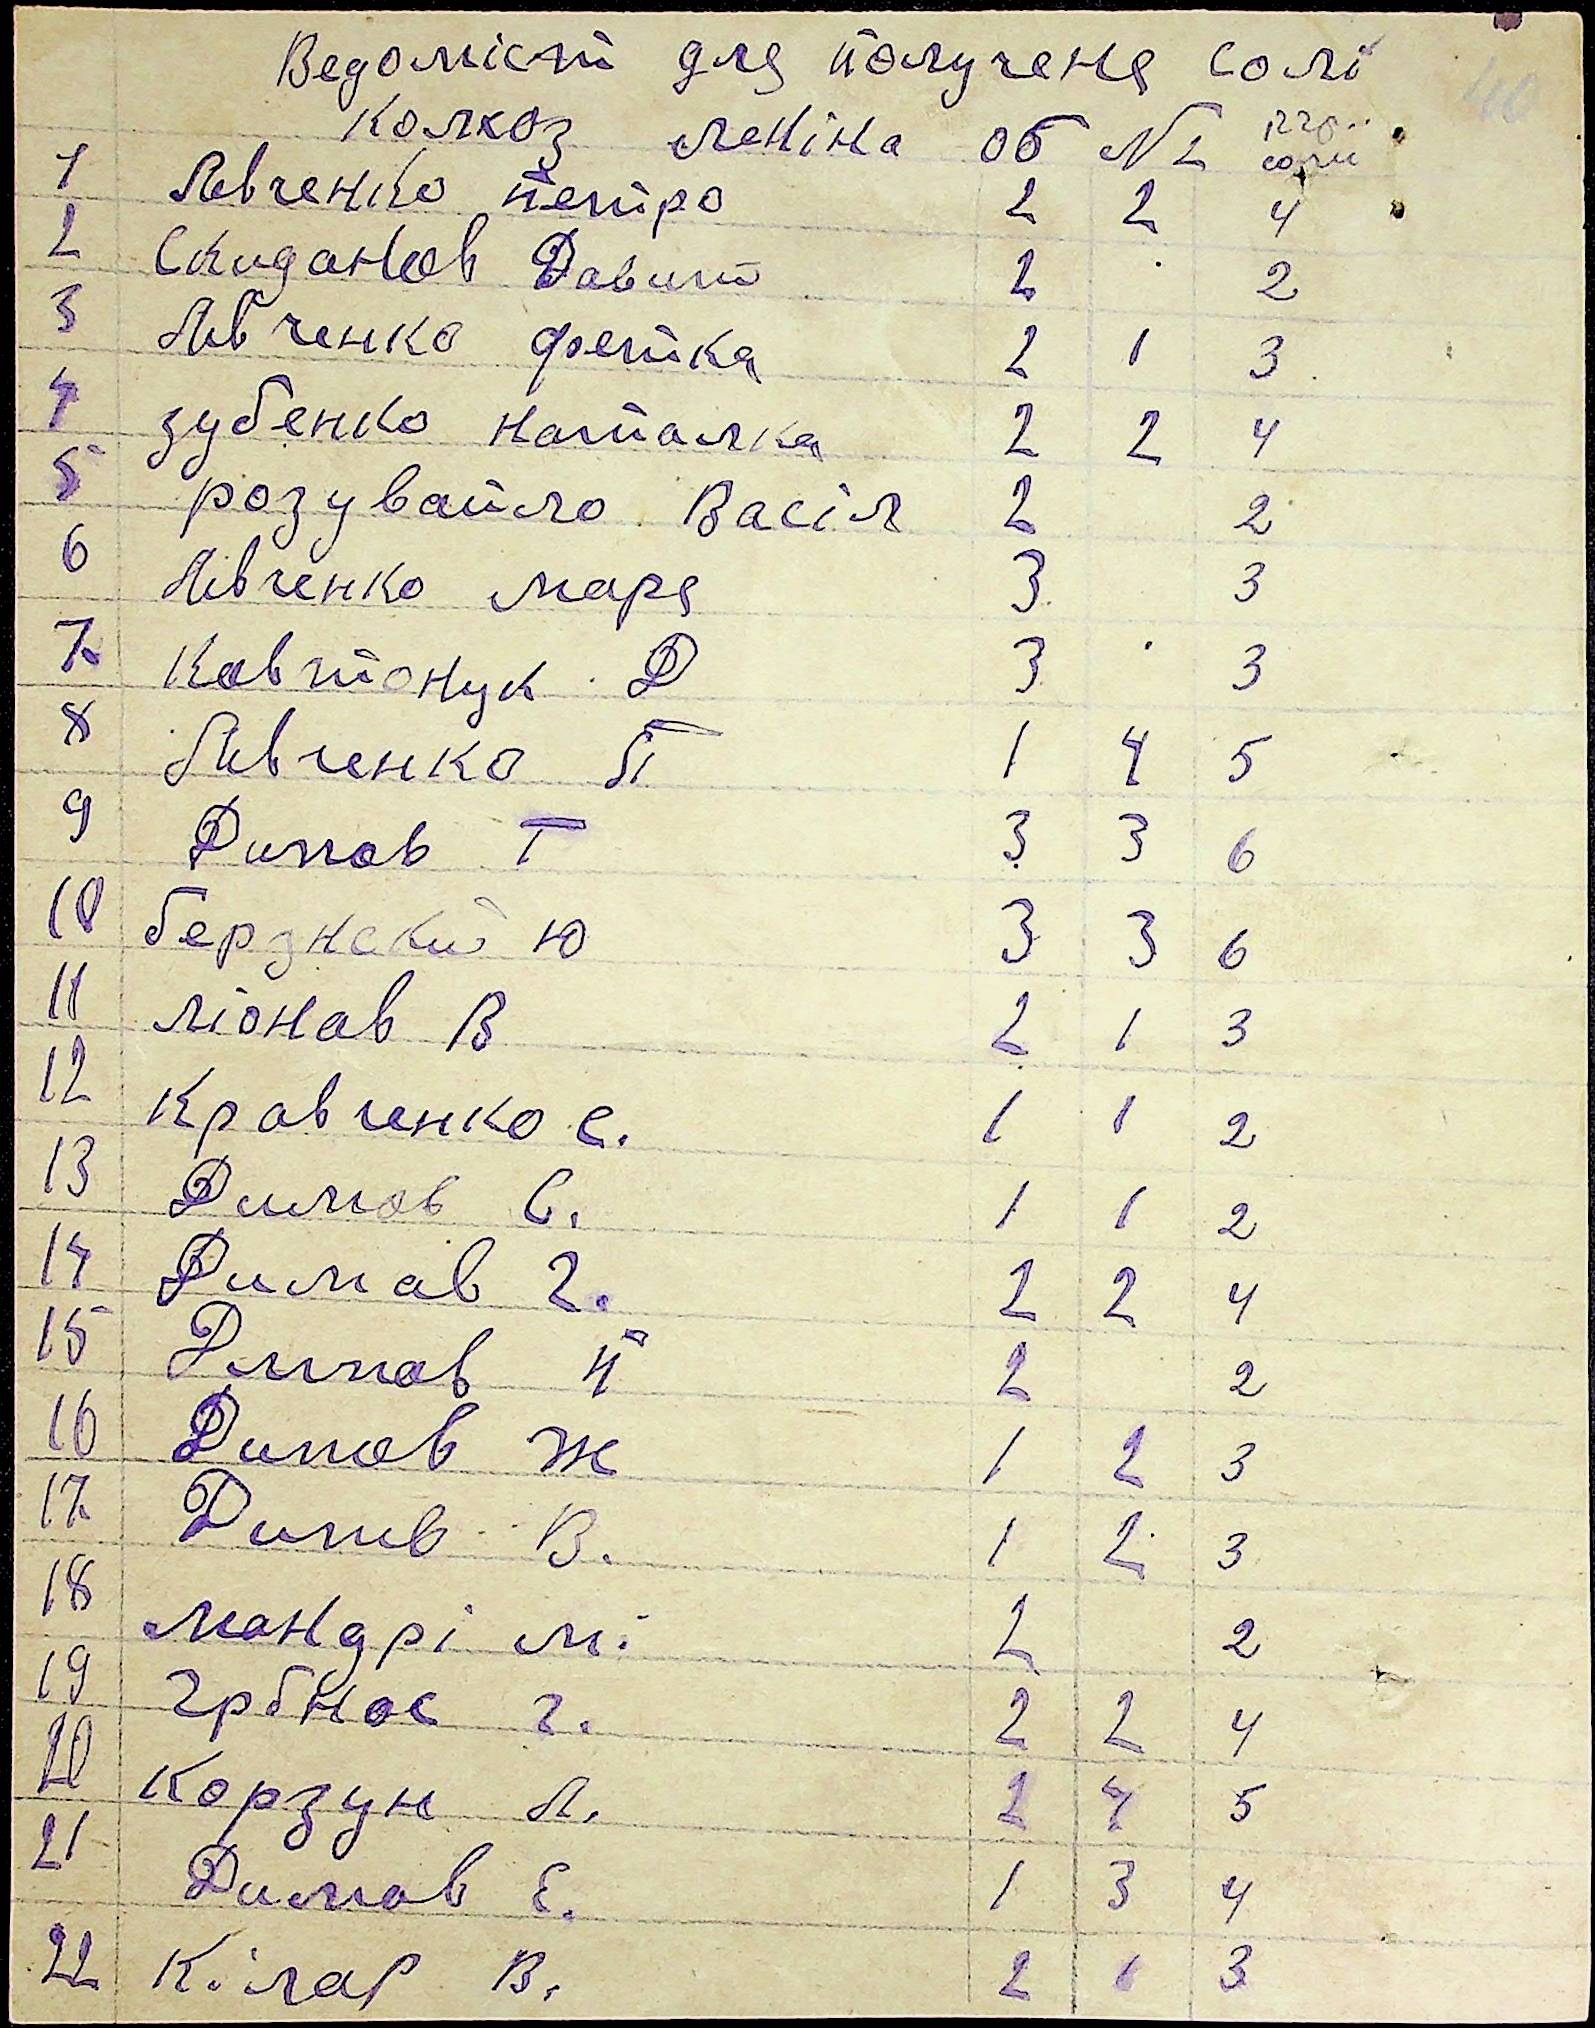 Ведомість для получена солі 40
колхоз леніна об № 2 солі
1 Левченко петро 2 2 4
2 Скиданов Давит 2 2
3 Левченко фетка 2 1 3
4 зубенко наталка 2 2 4
5 розувайло Васіл 2 2
6 Левченко маря 3 3
7 Ковтонук Д 3 3
8 Левченко П 1 4 5
9 Димов Т 3 3 6
10 берзнский Ю 3 3 6
11 ліонав В 2 1 3
12 Кравченко с. 1 1 2
13 Димов С. 1 1 2
14 Димав г. 2 2 4
15 Димов й 2 2
16 Димов Ж 1 2 3
17 Димв В. 1 2 3
18 мандрі м. 2 2
19 грбнос г. 2 2 4
20 Корзун Л. 2 4 5
21 Димов Е. 1 3 4
22 Кілар В. 2 1 3